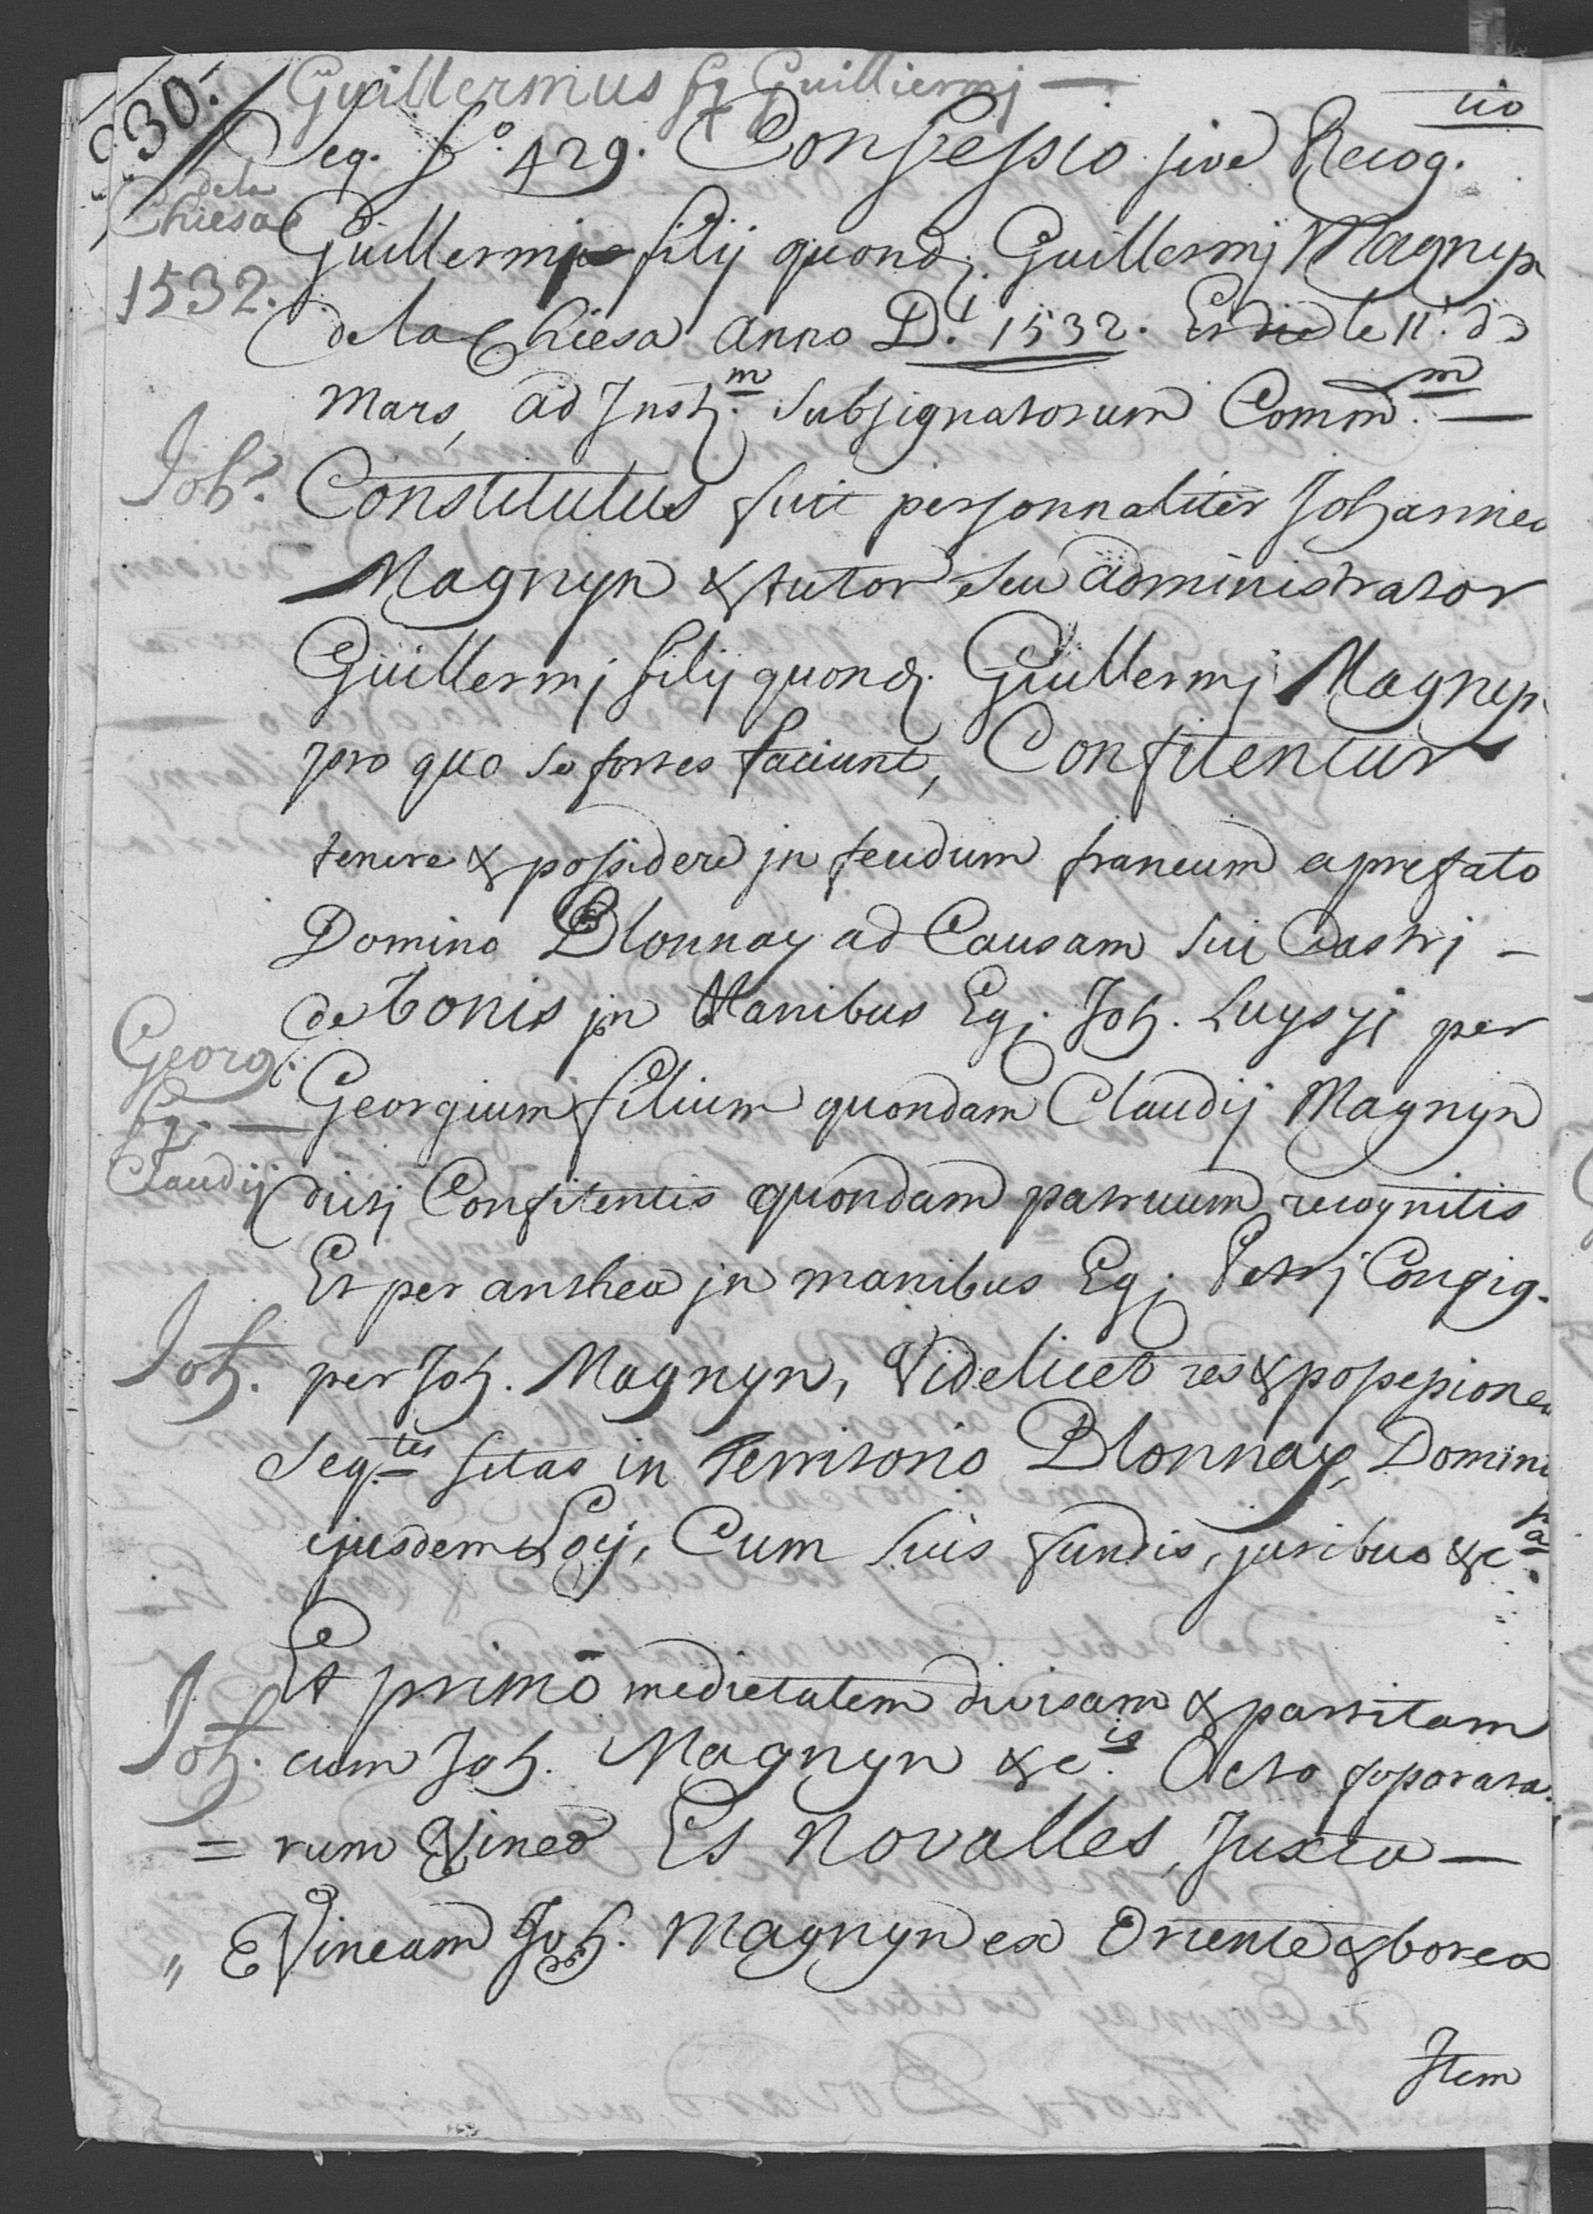 330.
Guillermus fq Guilliermj —
Seq. fo. 429. Confessio sive Recog.cio
dela Chiesa
Guillermj filij quondj. Guillermj Magnyn
1532.
de la Chiesa anno D.i 1532. Et die le 11.e de
mars, ad Instj.m Subsignatorum Comm.m —
Joh.s
Constitutus fuit personnaliter Johannes
Magnyn & tutor seu administrator
Guillermj filij quondj. Guillermj Magnyn
pro quo se fortes faciunt, Confitentur
tenere & possidere jn feudum francum a prefato
Domino Blonnay ad Causam sui Castrj –
de bonis jn Manibus Egj. Joh. Luysyj per
Georgj.
fq. —
Claudij
Georgium filium quondam Claudij Magnyn
dictj Confitentis quondam patruum recognitis
Et per anthea jn manibus Egj. Petrj Config.
Joh.
per Joh. Magnyn, Videlicet res & possessiones
Seq.tes sitas in Territorio Blonnay, Domini
ejusdem Locj, Cum suis fundis, juribus &c.a
Et primo medietatem divisam & partitam
Joh.
cum Joh. Magnyn &c.is Octo foporata.
= rum Vineæ Es Novalles, Juxta —
„ Vineam Joh. Magnyn ex Oriente & borea
Item